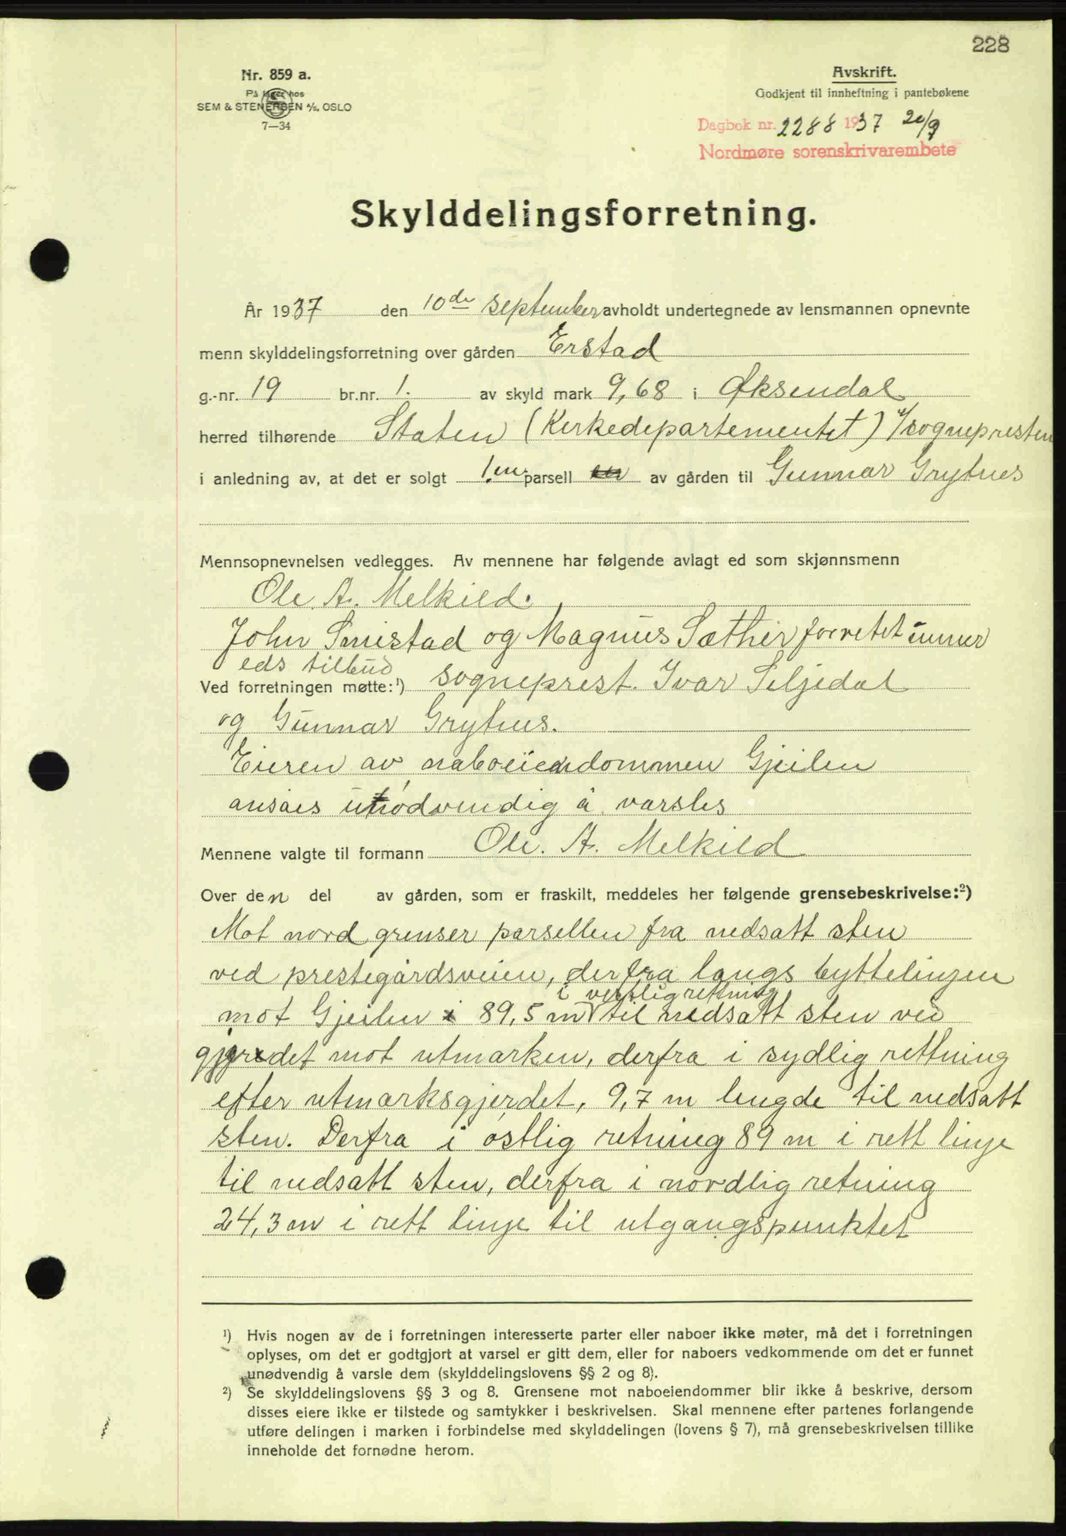 228
Nr. 859 a.
På lager hos
SEM & STENERSEN A/S. OSLO
7—34
Avskrift.
Godkjent til innheftning i pantebøkene
Dagbok nr. 2288 1937 20/9
Nordmøre sorenskrivarembete
Skylddelingsforretning.
År 1937 den 10de september avholdt undertegnede av lensmannen opnevnte
menn skylddelingsforretning over gården Erstad
g.-nr. 19 br.nr. 1. av skyld mark 9,68 i Øksendal
herred tilhørende Staten (Kirkedepartementet) v/sognepresten
i anledning av, at det er solgt 1.en parsell av gården til Gunnar Grythues
Mennsopnevnelsen vedlegges. Av mennene har følgende avlagt ed som skjønnsmenn
Ole. A. Melkild.
John Smistad og Magnus Sæther forretet
eds tilbud
Ved forretningen møtte:¹) sogneprest. Ivar Seljedal
og Gunnar Grythus.
Eieren av naboeiendommen Gjeilen
ansaes unødvendig å varsles
Mennene valgte til formann Ole. A. Melkild
Over den del av gården, som er fraskilt, meddeles her følgende grensebeskrivelse:²)
Mot nord grenser parsellen fra nedsatt sten
ved prestegårdsveien, derfra langs byttelinjen
i vestlig rettning
mot Gjeilen 89,5 m til nedsatt sten ved
gjerdet mot utmarken, derfra i sydlig rettning
efter utmarksgjerdet, 9,7 m lengde til nedsatt
sten. Derfra i østlig retning 89 m i rett linje
til nedsatt sten, derfra i nordlig retning
24,3 m i rett linje til utgangspunktet
¹) Hvis nogen av de i forretningen interesserte parter eller naboer ikke møter, må det i forretningen
oplyses, om det er godtgjort at varsel er gitt dem, eller for naboers vedkommende om det er funnet
unødvendig å varsle dem (skylddelingslovens §§ 2 og 8).
²) Se skylddelingslovens §§ 3 og 8. Grensene mot naboeiendommer blir ikke å beskrive, dersom
disses eiere ikke er tilstede og samtykker i beskrivelsen. Skal mennene efter partenes forlangende
utføre delingen i marken i forbindelse med skylddelingen (lovens § 7), må grensebeskrivelsen tillike
inneholde det fornødne herom.